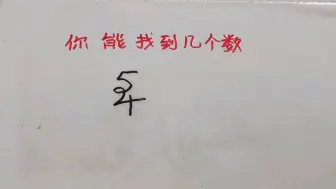 你能找到几个数
5
2
4